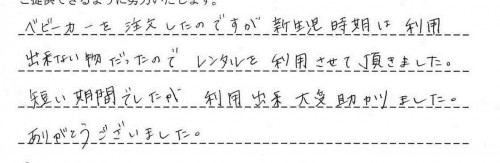 ご提供できるように努力いたします。
ベビーカーを注文したのですが新生児時期は利用
出来ない物だったのでレンタルを利用させて頂きました。
短い期間でしたが利用出来大変助かりました。
ありがとうございました。